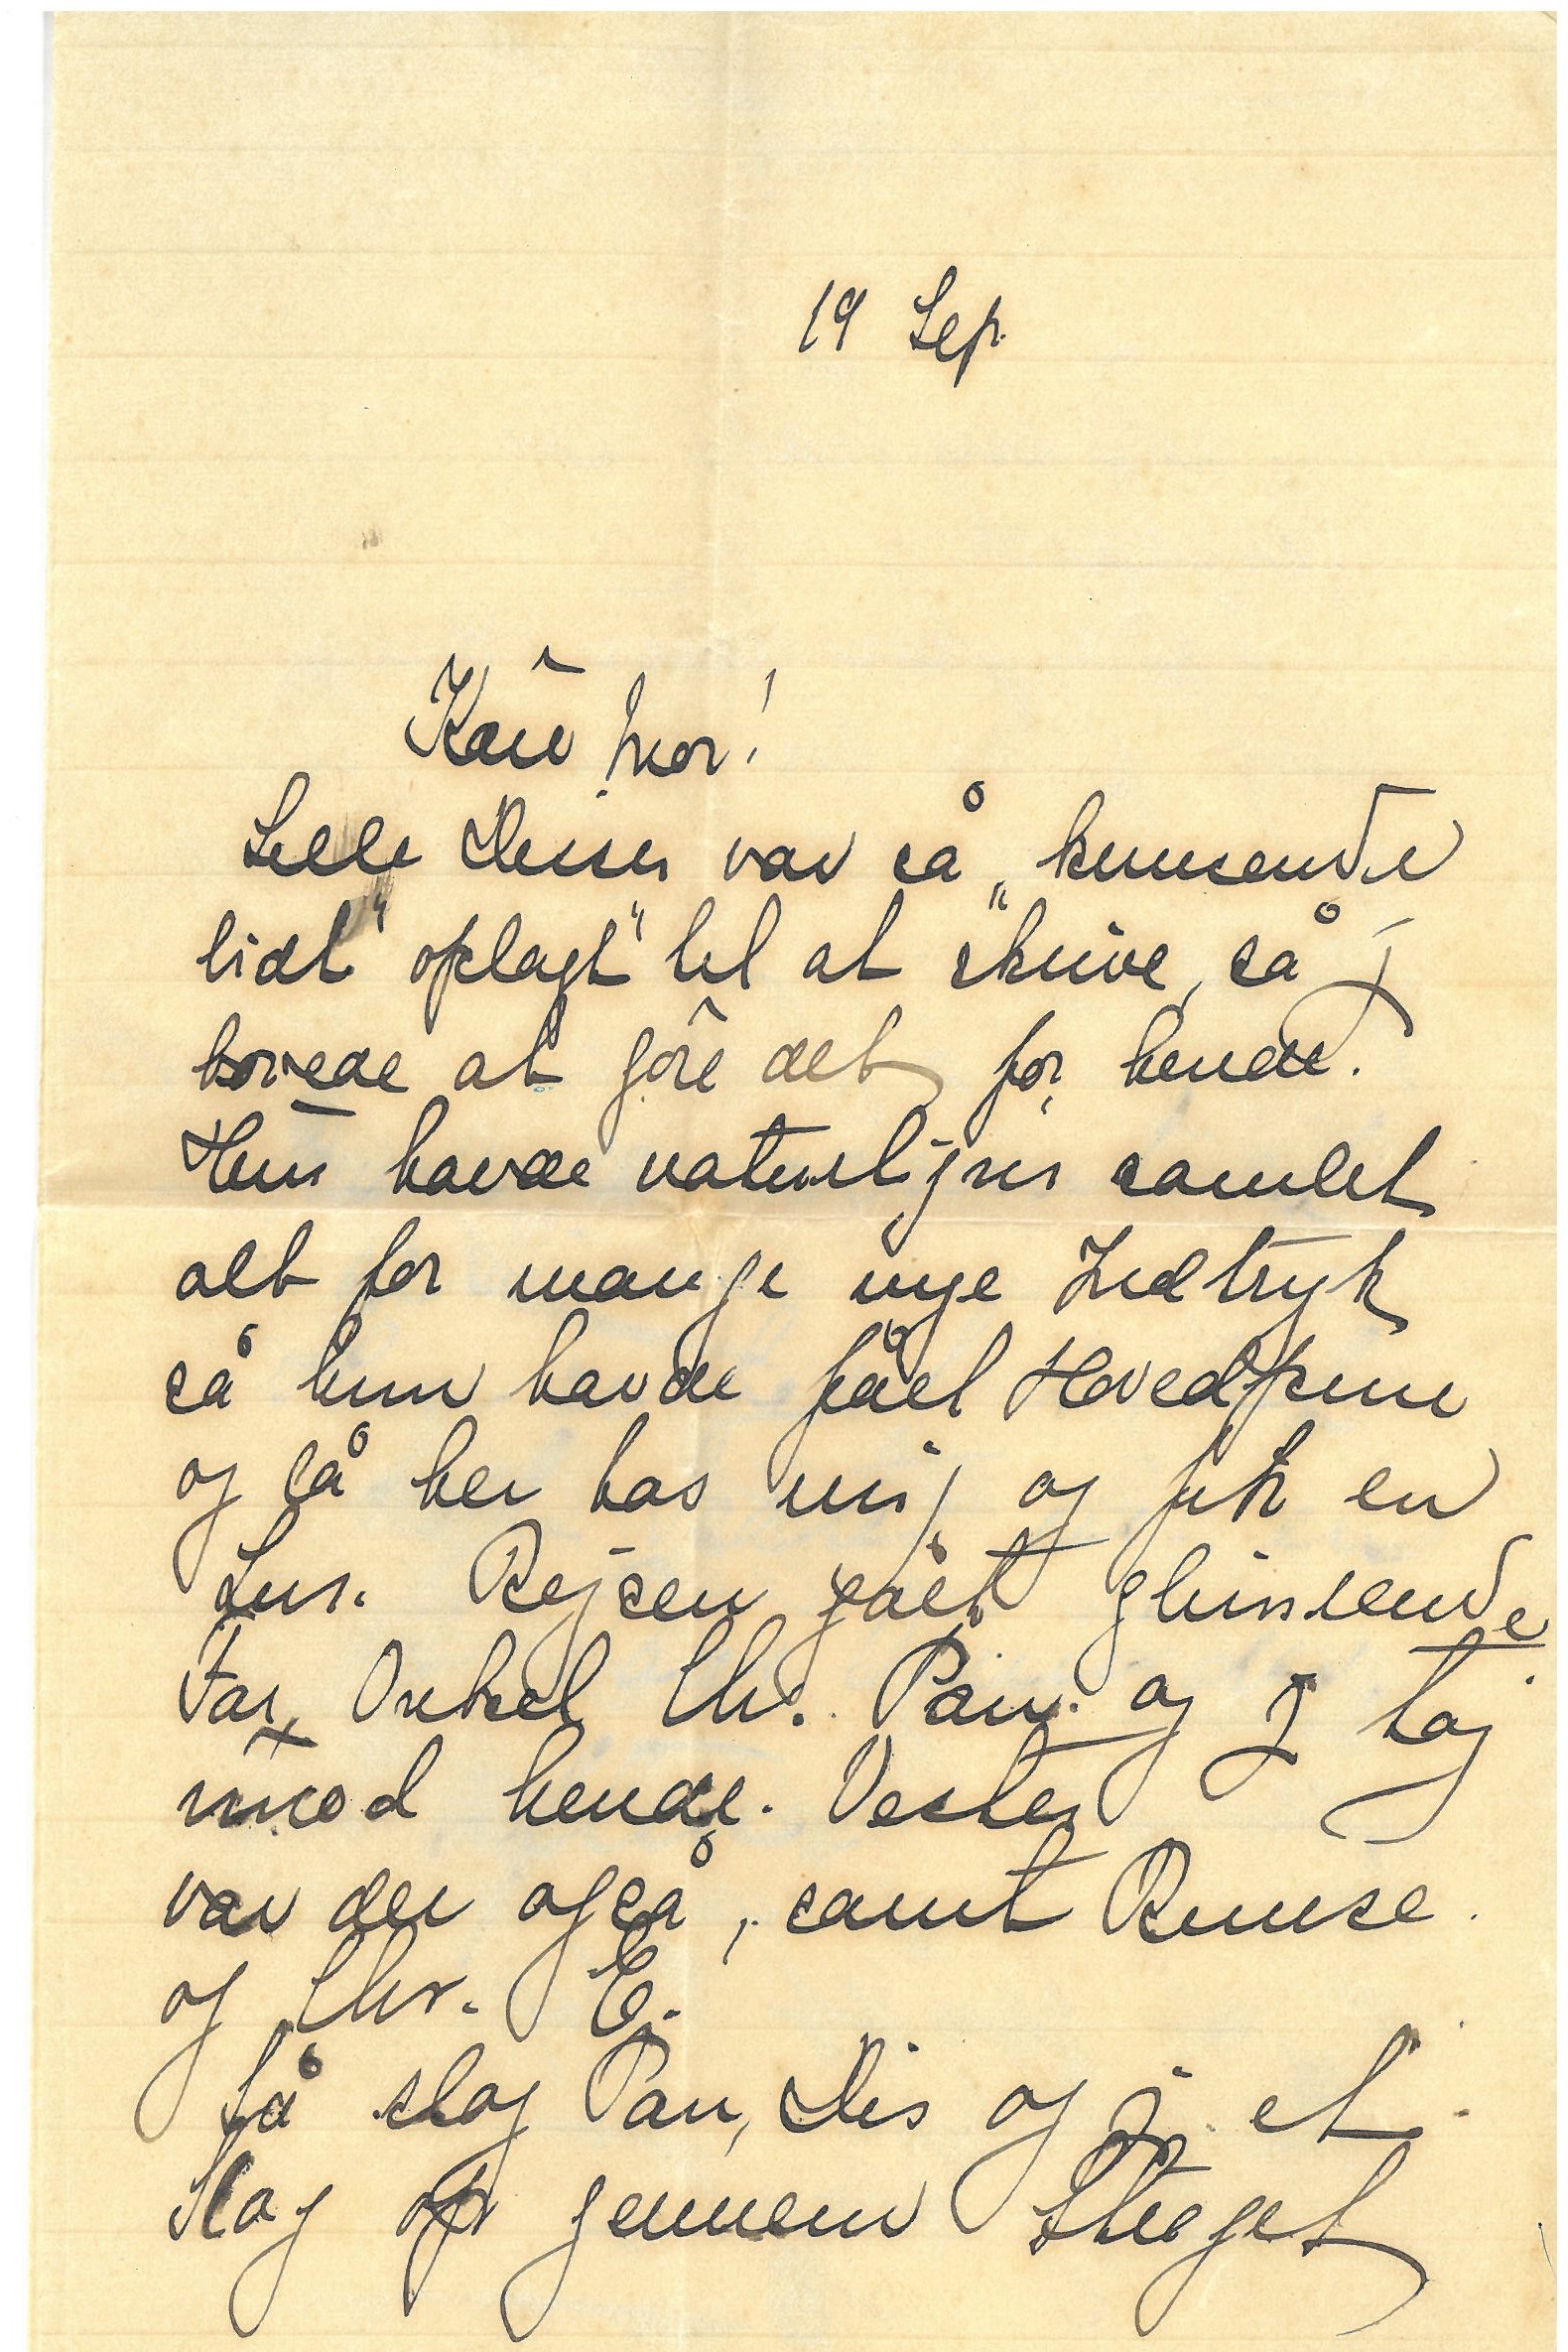 19 Sep.
Kære Mor!
Lille Disser var så „kunsende
lidt" oplagt" til at skrive, så j
lovede at göre det for hende.
Hun havde naturligvis samlet
alt for mange nye Indtryk
så hun havde fået Hovedpine
og lå her hos mig og fik en
Lur. Rejsen gået glimrende
Far, Onkel Chr. Pan. og J tog
imod hende. Vester
var der også, samt Bimse.
og Chr. E.
Så slog Pan, Dis og j. et
Slag op gennem Strøget